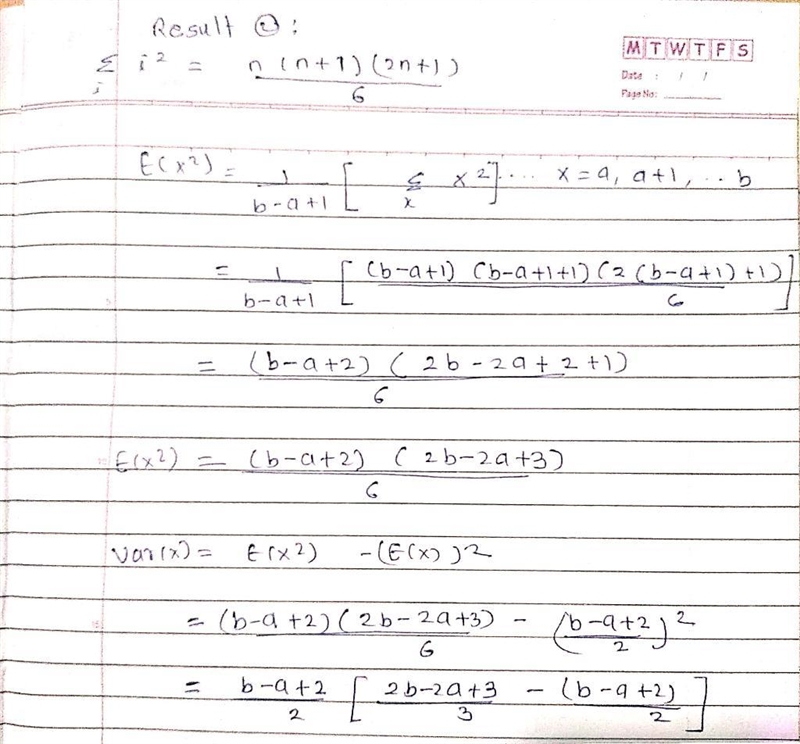 Result ②:
M T W T F S
Σ i² = n(n+1)(2n+1)
i 6
Date : / /
Page No:
E(x²) = 1/(b-a+1) [ Σ x x² ] ... x = a, a+1, .. b
= 1/(b-a+1) [ (b-a+1) (b-a+1+1) (2(b-a+1)+1) / 6 ]
= (b-a+2) (2b-2a+2+1) / 6
E(x²) = (b-a+2) (2b-2a+3) / 6
Var(x) = E(x²) - (E(x))²
= (b-a+2)(2b-2a+3) / 6 - ((b-a+2) / 2)²
= (b-a+2) / 2 [ (2b-2a+3) / 3 - (b-a+2) / 2 ]